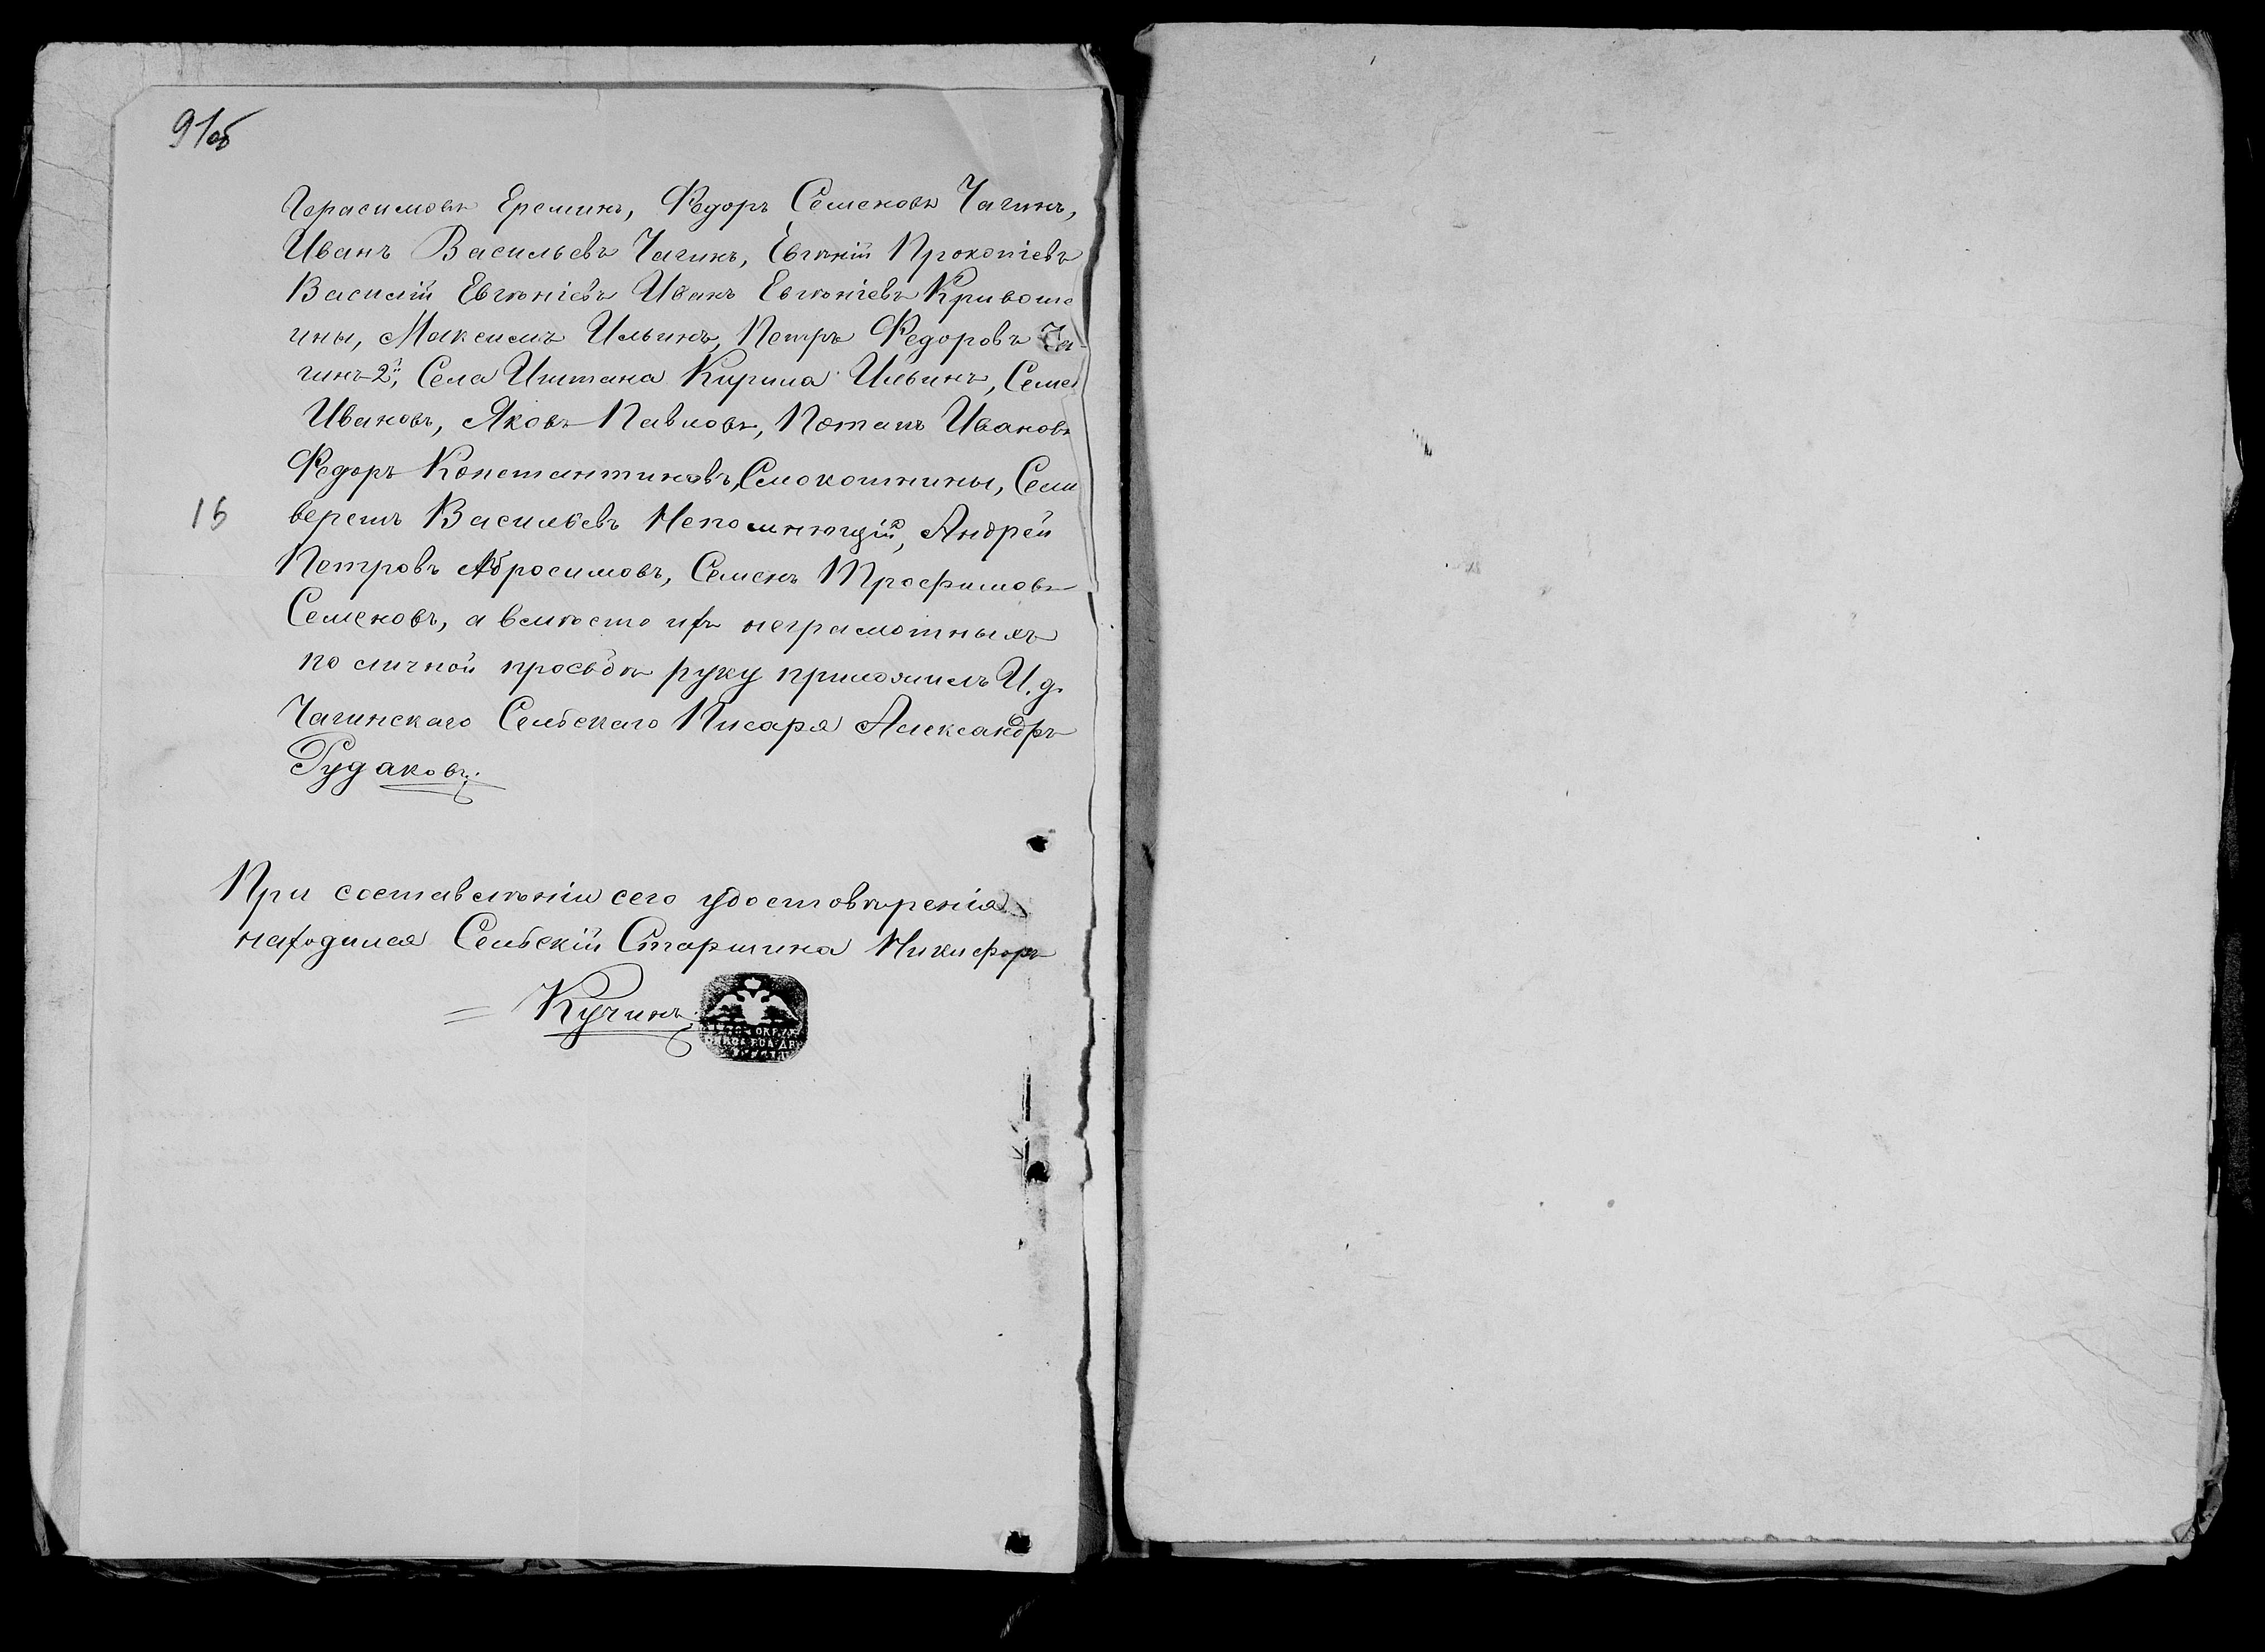 91об
Герасимовъ Ереминъ, Федоръ Семеновъ Чагинъ,
Иванъ Васильевъ Чагинъ, Евгѣній Прокопіевъ
Василій Евгѣніевъ Иванъ Евгѣніевъ Кривоше
ины, Максимъ Ильинъ, Петръ Федоровъ Ча-
гинъ 2й, Села Иштана Кирила Ильинъ, Семе
Ивановъ, Яковъ Павловъ, Потапъ Ивановъ
Федоръ Константиновъ, Смокотнины, Сели
16 верстъ Васильевъ Непомнющій, Андрей
Петровъ Абросимовъ, Семенъ Трофимовъ
Семеновъ, а вмѣсто ихъ неграмотныхъ
по личной просьбѣ руку приложилъ И. д.
Чагинскаго Сельскаго Писаря Александръ
Рудаковъ.
При составлѣніи сего удостовѣренія
находился Сельскій Старшина Никифоръ
= Кучинъ